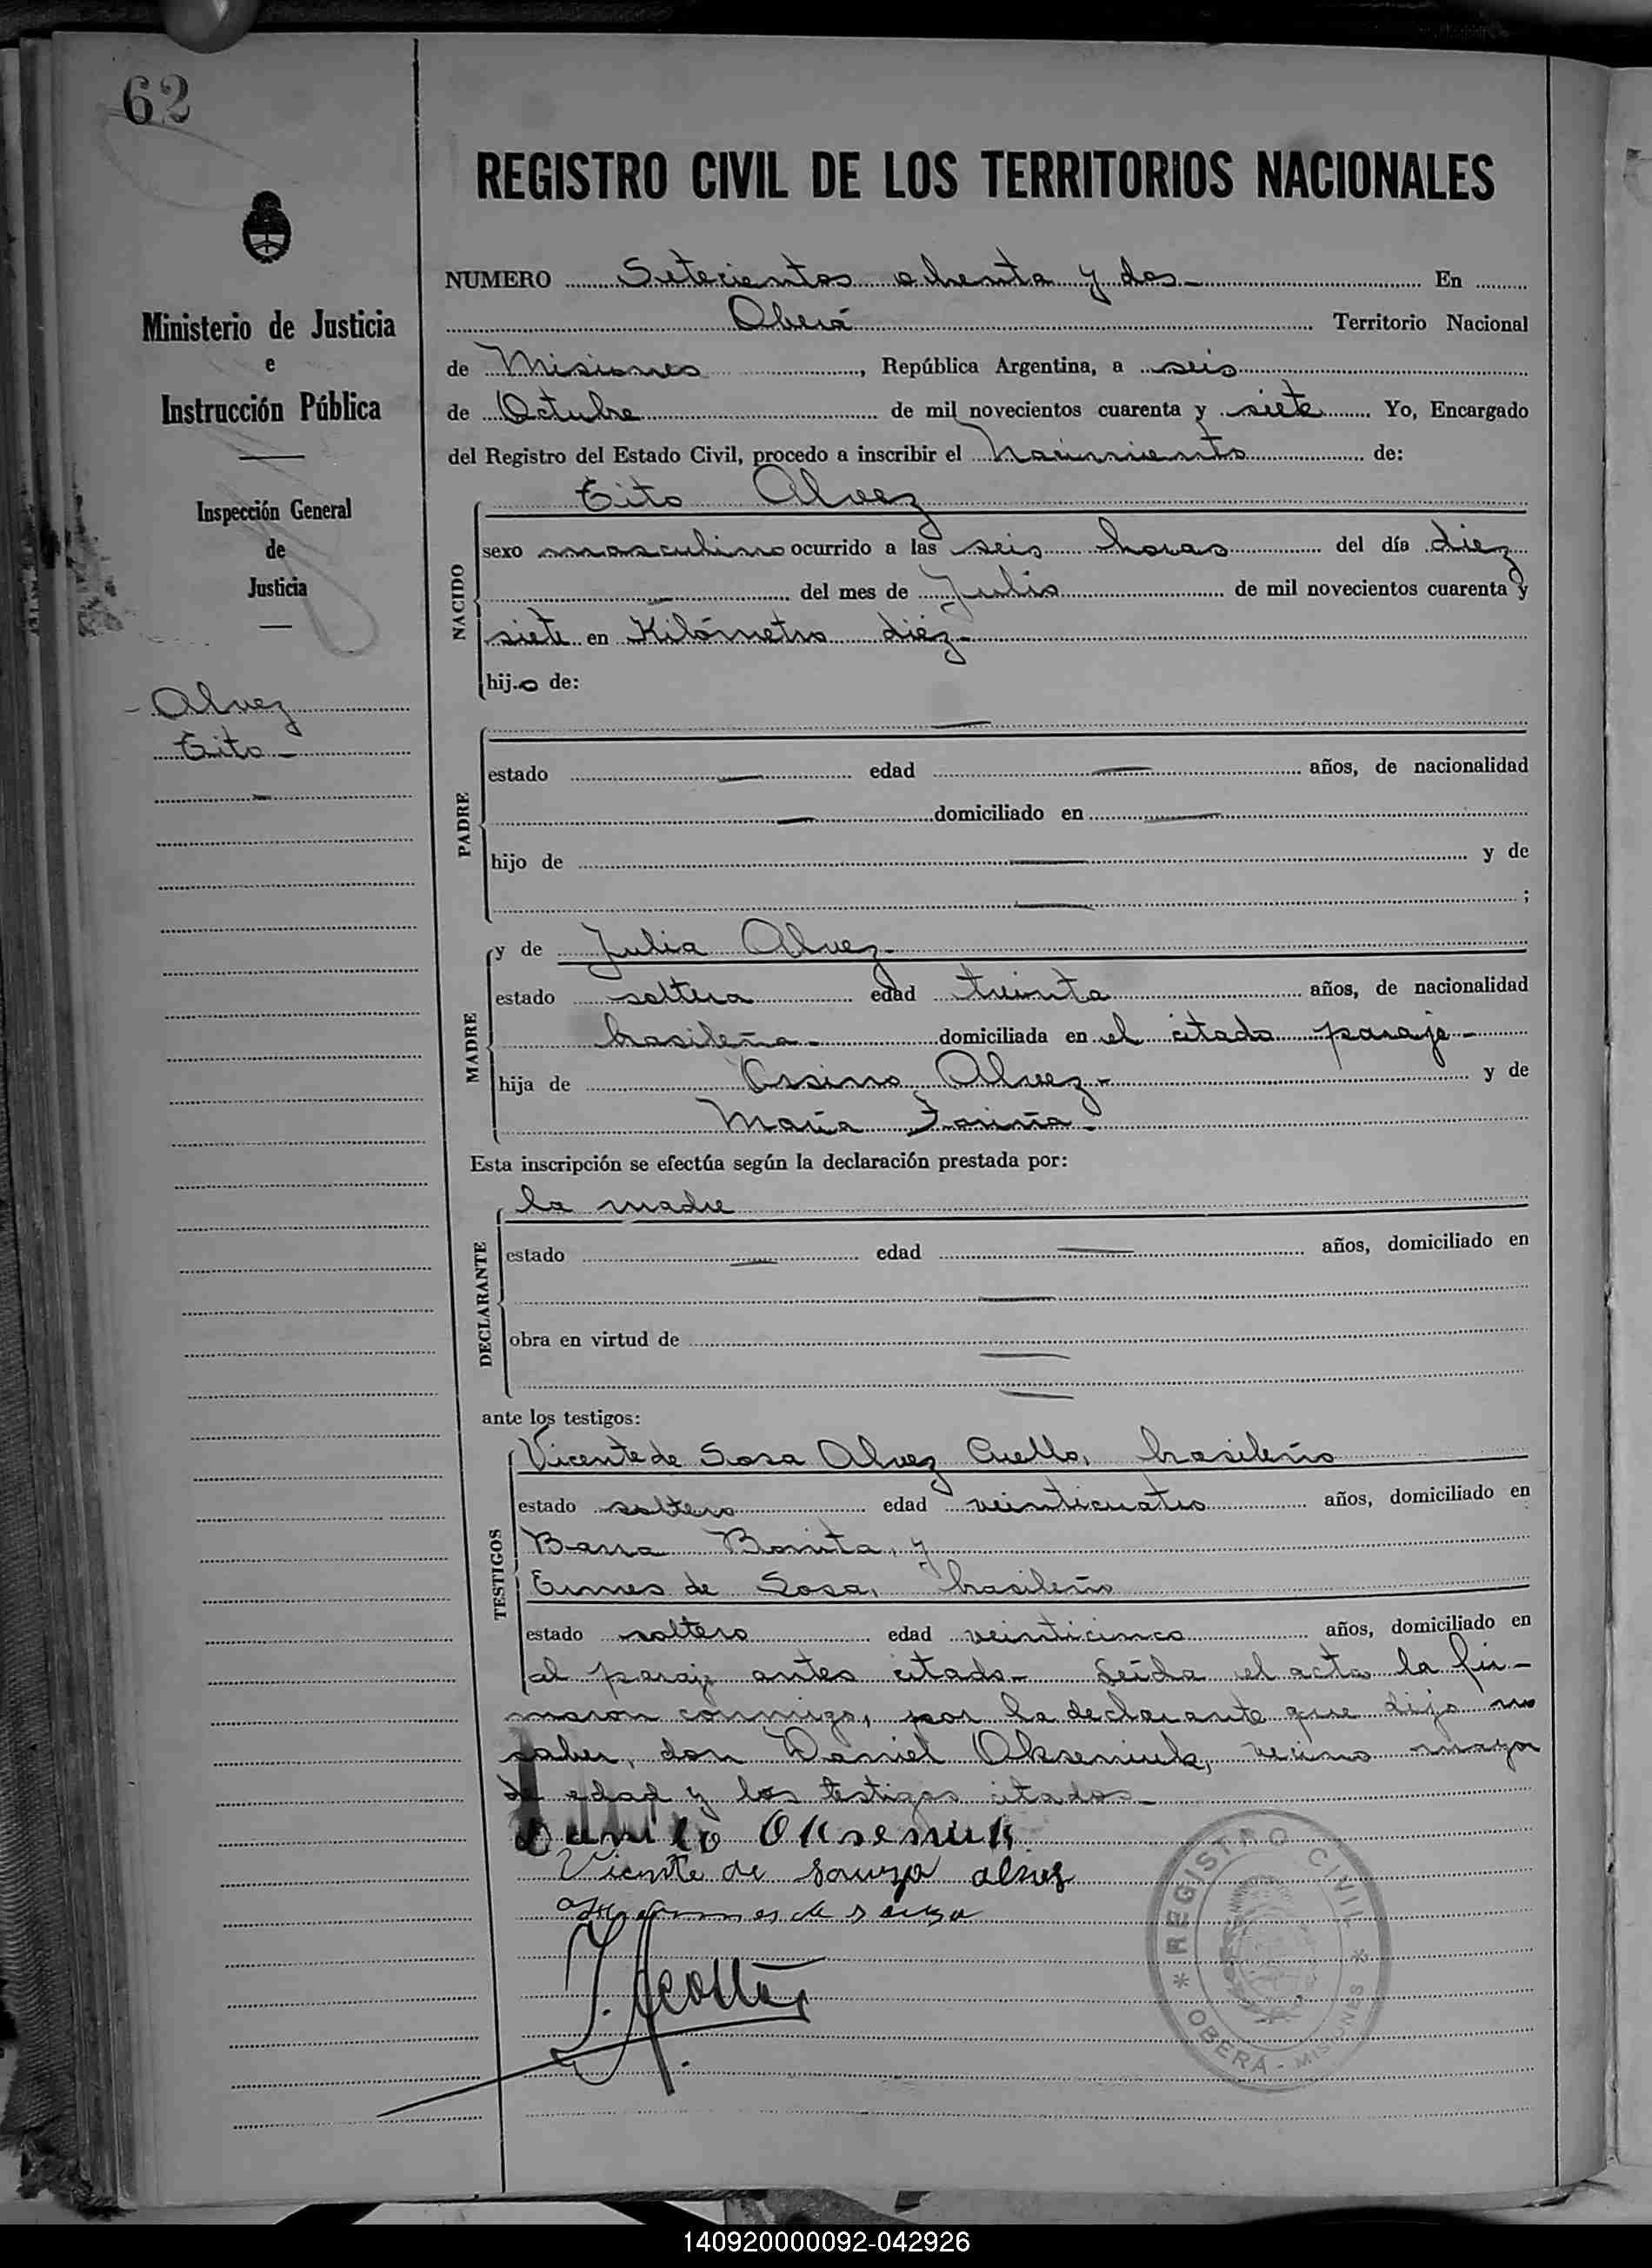 62
REGISTRO CIVIL DE LOS TERRITORIOS NACIONALES
Ministerio de Justicia
e
Instrucción Pública
Inspección General
de
Justicia
Alvez
Tito
NUMERO Setecientos ochenta y dos En
Oberá Territorio Nacional
de Misiones, República Argentina, a seis
de Octubre de mil novecientos cuarenta y siete Yo, Encargado
del Registro del Estado Civil, procedo a inscribir el nacimiento de:
Tito Alvez
NACIDO
sexo masculino ocurrido a las seis horas del día diez
del mes de Julio de mil novecientos cuarenta y
siete en Kilómetro diéz
hijo de:
PADRE
estado edad años, de nacionalidad
domiciliado en
hijo de y de
;
MADRE
y de Julia Alvez
estado soltera edad treinta años, de nacionalidad
brasileña domiciliada en el citado paraje
hija de Alvez y de
María Fariña
Esta inscripción se efectúa según la declaración prestada por:
la madre
DECLARANTE
estado edad años, domiciliado en
obra en virtud de
ante los testigos:
TESTIGOS
Vicente de Sosa Alvez Cuello, brasileño
estado soltero edad veinticuatro años, domiciliado en
Barra Bonita, y
de Sosa, brasileño
estado soltero edad veinticinco años, domiciliado en
el paraje antes citado - Leída el acta la fir-
maron conmigo, por la declarante que dijo no
saber, don Daniel Okseniuk, vecino mayor
de edad y los testigos citados
Danilo Okseniuk
Vicente de Souza alves
de souza
REGISTRO CIVIL
* OBERÁ - MISIONES *
140920000092-042926